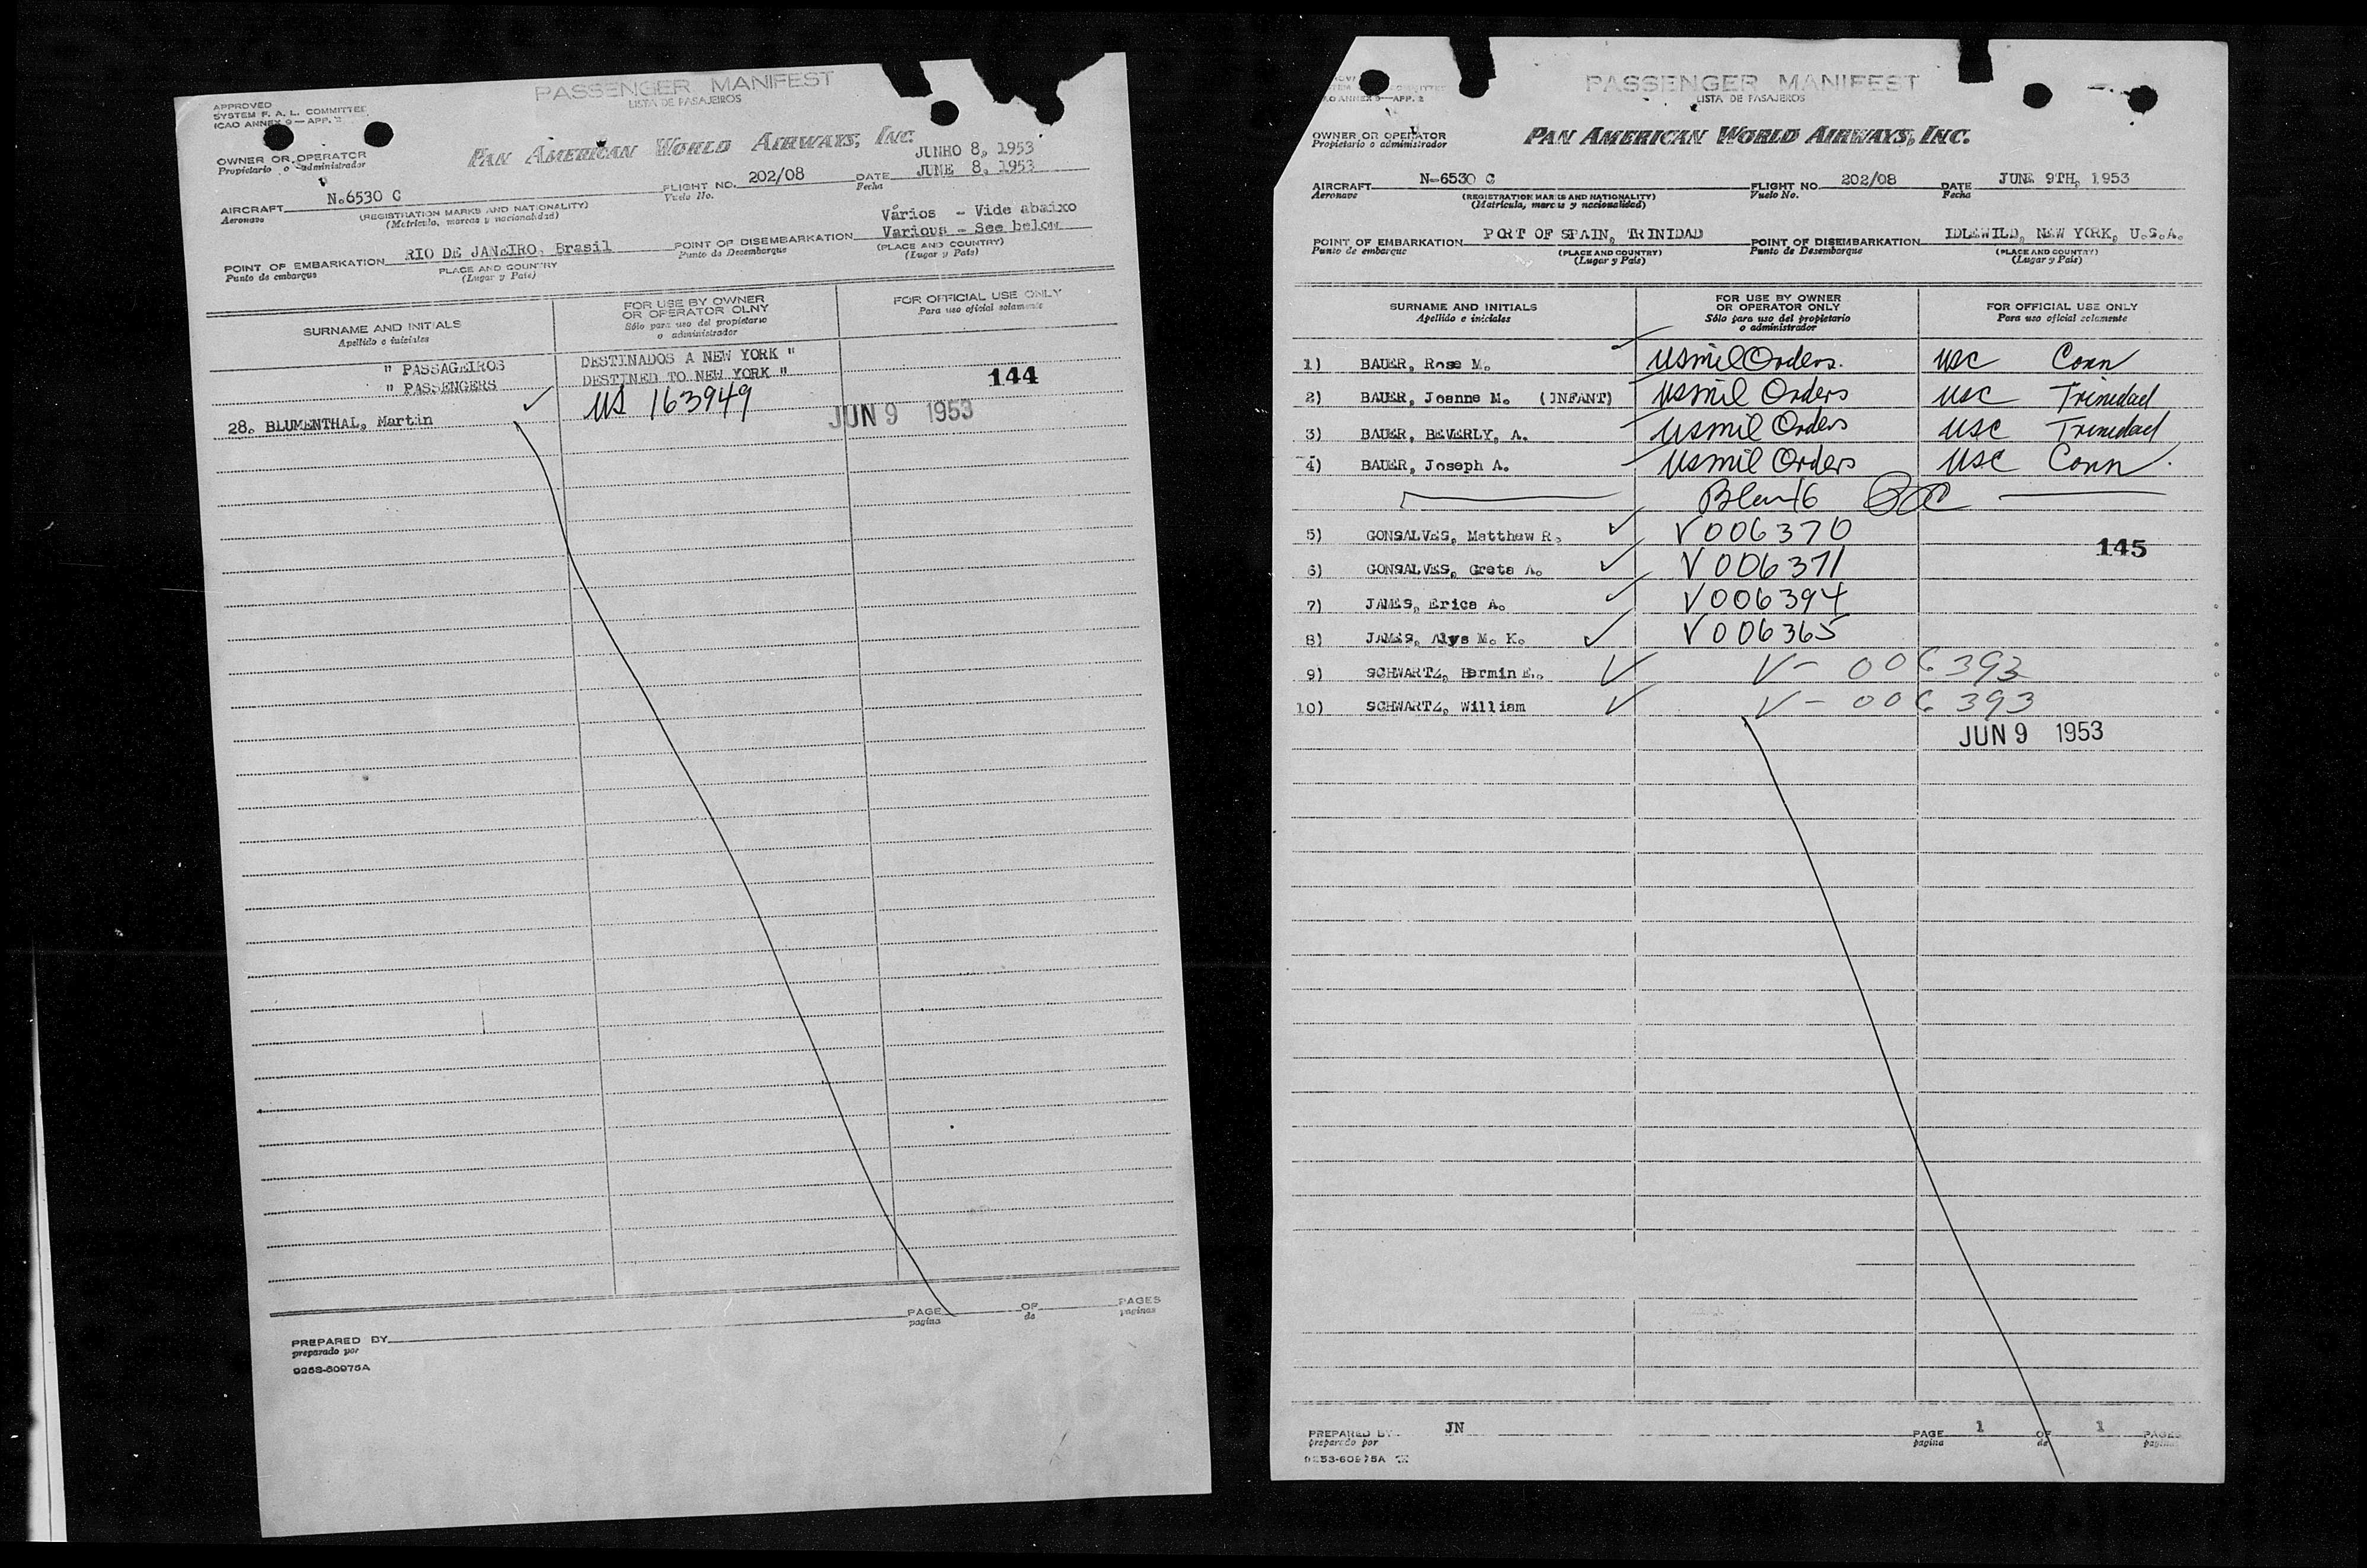 PASSENGER MANIFEST
LISTA DE PASAJEIROS
APPROVED
SYSTEM F. A. L. COMMITTEE
ICAO ANNEX 9 — APP. 2
PAN AMERICAN WORLD AIRWAYS, INC.
OWNER OR OPERATOR
Propietario o administrador
JUNHO 8, 1953
AIRCRAFT N.6530 C FLIGHT NO. 202/08 DATE JUNE 8, 1953
Aeronave (REGISTRATION MARKS AND NATIONALITY) Vuelo No. Fecha
(Matrícula, marcas y nacionalidad)
Vários - Vide abaixo
POINT OF EMBARKATION RIO DE JANEIRO, Brasil POINT OF DISEMBARKATION Various - See below
Punto de embarque PLACE AND COUNTRY Punto de Desembarque (PLACE AND COUNTRY)
(Lugar y País) (Lugar y País)
SURNAME AND INITIALS FOR USE BY OWNER OR OPERATOR OLNY FOR OFFICIAL USE ONLY
Apellido e iniciales Sólo para uso del propietario o administrador Para uso oficial solamente
" PASSAGEIROS DESTINADOS A NEW YORK "
" PASSENGERS DESTINED TO NEW YORK " 144
28. BLUMENTHAL, Martin US 163949 JUN 9 1953
PAGE OF PAGES
pagina de paginas
PREPARED BY
preparado por
9258-60975A
PASSENGER MANIFEST
LISTA DE PASAJEROS
APP. 2
OWNER OR OPERATOR
Propietario o administrador
PAN AMERICAN WORLD AIRWAYS, INC.
AIRCRAFT N-6530 C FLIGHT NO. 202/08 DATE JUNE 9TH, 1953
Aeronave (REGISTRATION MARKS AND NATIONALITY) Vuelo No. Fecha
(Matrícula, marcas y nacionalidad)
POINT OF EMBARKATION PORT OF SPAIN, TRINIDAD POINT OF DISEMBARKATION IDLEWILD, NEW YORK, U.S.A.
Punto de embarque (PLACE AND COUNTRY) Punto de Desembarque (PLACE AND COUNTRY)
(Lugar y País) (Lugar y País)
SURNAME AND INITIALS FOR USE BY OWNER OR OPERATOR ONLY FOR OFFICIAL USE ONLY
Apellido e iniciales Sólo para uso del propietario o administrador Para uso oficial solamente
1) BAUER, Rose M. US mil Orders. USC Conn
2) BAUER, Joanne M. (INFANT) US mil Orders USC Trinidad
3) BAUER, BEVERLY, A. US mil Orders USC Trinidad
4) BAUER, Joseph A. US mil Orders USC Conn.
Blank
5) GONSALVES, Matthew R. V006370
145
6) GONSALVES, Greta A. V006371
7) JAMES, Erica A. V006394
8) JAMES, Alys M. K. V006365
9) SCHWARTZ, Hermin E. V-006392
10) SCHWARTZ, William V-006393
JUN 9 1953
PREPARED BY JN PAGE 1 OF 1 PAGES
preparado por pagina de
60975A